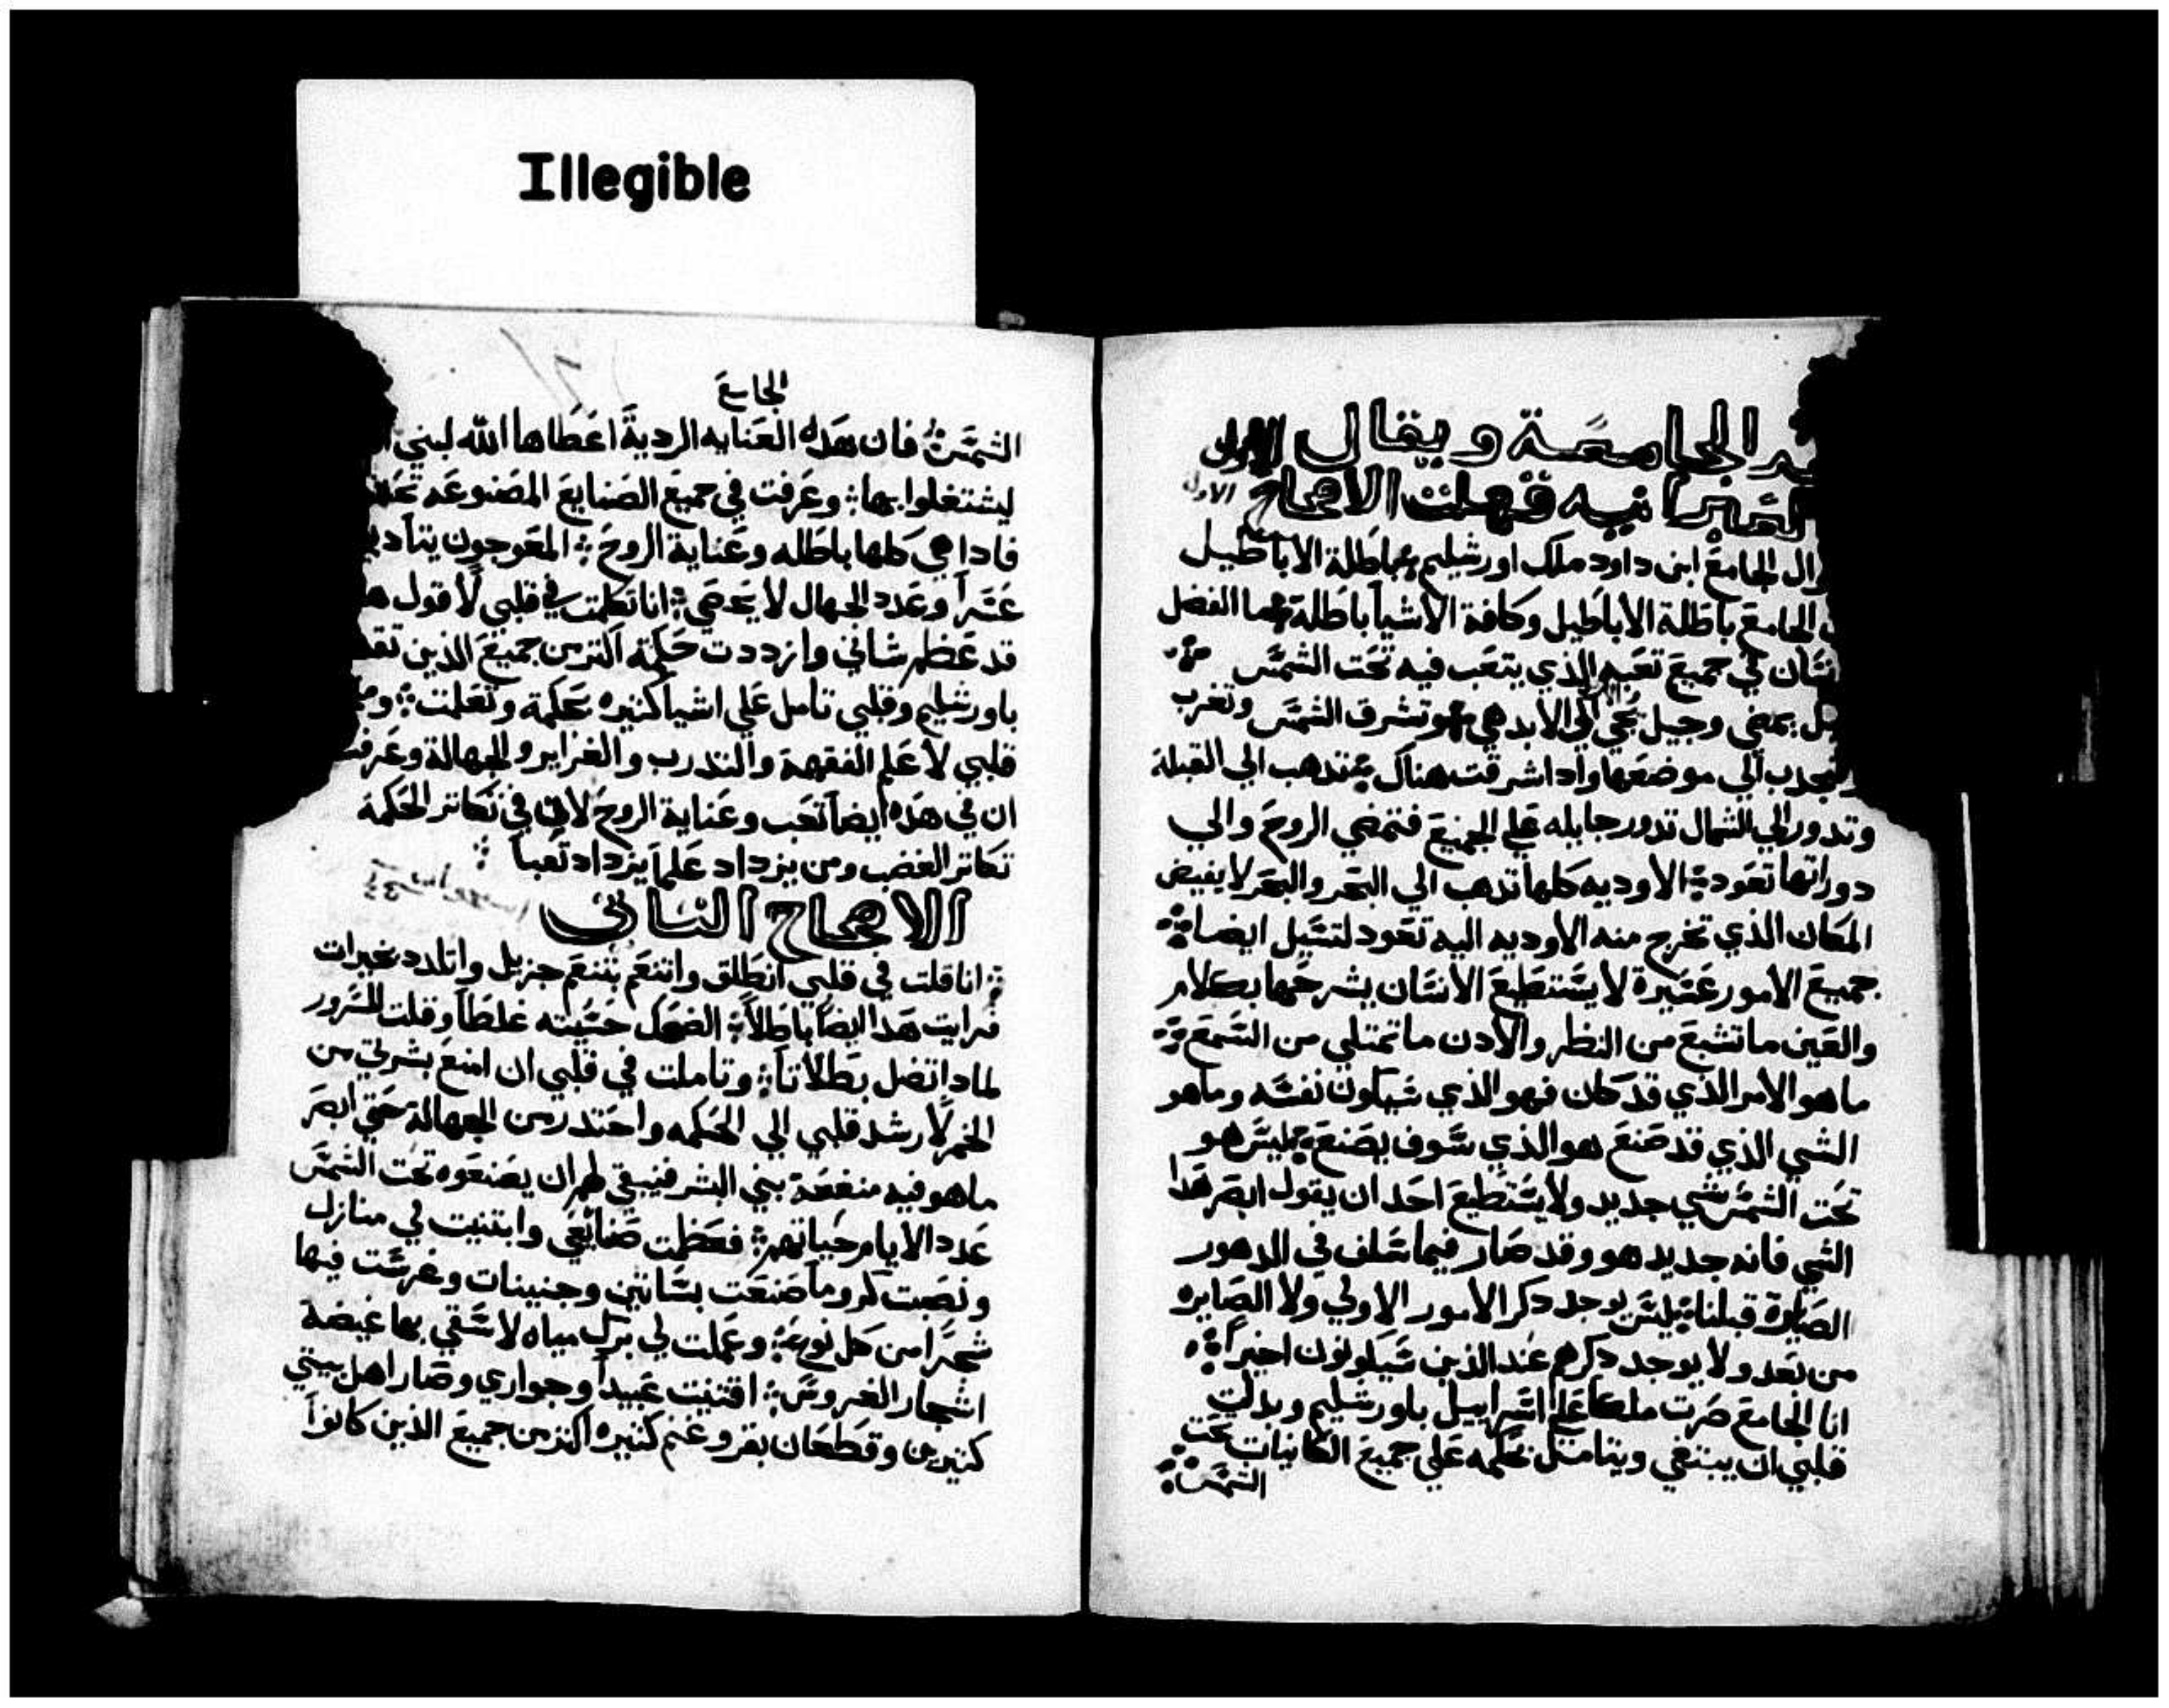 Illegible
الجامعة ويقال
الاول
قهلت الاصحاح
ال الجامع ابن داود ملك اورشليم باطلة الاباطيل
الجامع باطلة الاباطيل وكافة الاشيا باطلة ما الفضل
في جميع تعبه الذي يتعب فيه تحت الشمس
يمضي وجيل يجي الي الابد هي تشرق الشمس وتغرب
الي موضعها وادا اشرقت هناك تدهب الي القبلة
وتدور الي الشمال تدور جايله علي الجميع فتمضي الروح والي
دوراتها تعود الاوديه كلها تدهب الي البحر والبحر لا يفيض
المكان الذي تخرج منه الاوديه اليه تعود لتسيل ايضا
جميع الامور عسرة لا يستطيع الانسان يشرحها بكلام
والعين ما تشبع من النظر والادن ما تمتلي من السمع
ما هو الامر الذي قد كان فهو الذي سيكون نفسه وما هو
الشي الذي قد صنع هو الذي سوف يصنع ليس هو
تحت الشمس شي جديد ولا يستطيع احد ان يقول ابصر هدا
الشي فانه جديد هو وقد صار فيما سلف في الدهور
الصايرة قبلنا ليس يوجد دكر الامور الاولي ولا الصايره
من بعد ولا يوجد دكرهم عند الذين سيكونون اخيراً
انا الجامع صرت ملكا علي اسراييل باورشليم وبدلت
قلبي ان يبتغي ويتامل بحكمه علي جميع الكاينات تحت
الشمس
الجامع
الشمس فان هده العنايه الردية اعطاها الله لبني
ليشتغلوا بها وعرفت في جميع الصنايع المصنوعه
فادا هي كلها باطله وعناية الروح المعوجون
عسراً وعدد الجهال لا يحصي انا تكلمت في قلبي لاقول
قد عظم شاني وازددت حكمة اكتر من جميع الذين
باورشليم وقلبي تامل علي اشيا كتيره بحكمة وتعلمت
قلبي لاعلم الفقهة والتدرب والغزاير والجهالة وعرفت
ان في هده ايضاً تعب وعناية الروح لان في تكاتر الحكمة
تكاتر الغضب ومن يزداد علماً يزداد تعباً
الاصحاح التاني
انا قلت في قلبي انطلق واتنعم بتنعم جزيل واتلدد بخيرات
فرايت هدا ايضاً باطلاً الضحك حسبته غلطاً وقلت للسرور
لمادا تضل بطلاناً وتاملت في قلبي ان امنع بشرتي من
الخمر لارشد قلبي الي الحكمه واحتدر من الجهالة حتي ابصر
ما هو فيه منفعة بني البشر فينبغي لهم ان يصنعوه تحت الشمس
عدد الايام حياتهم فعظمت صنايعي وابتنيت لي منازل
ونصبت كروماً صنعت بساتين وجنينات وغرست فيها
شجراً من كل نوع وعملت لي برك مياه لاسقي بها غيضة
اشجار الغروس اقتنيت عبيداً وجواري وصار اهل بيتي
كتيرين وقطعان بقر وغنم كتيره اكتر من جميع الذين كانوا